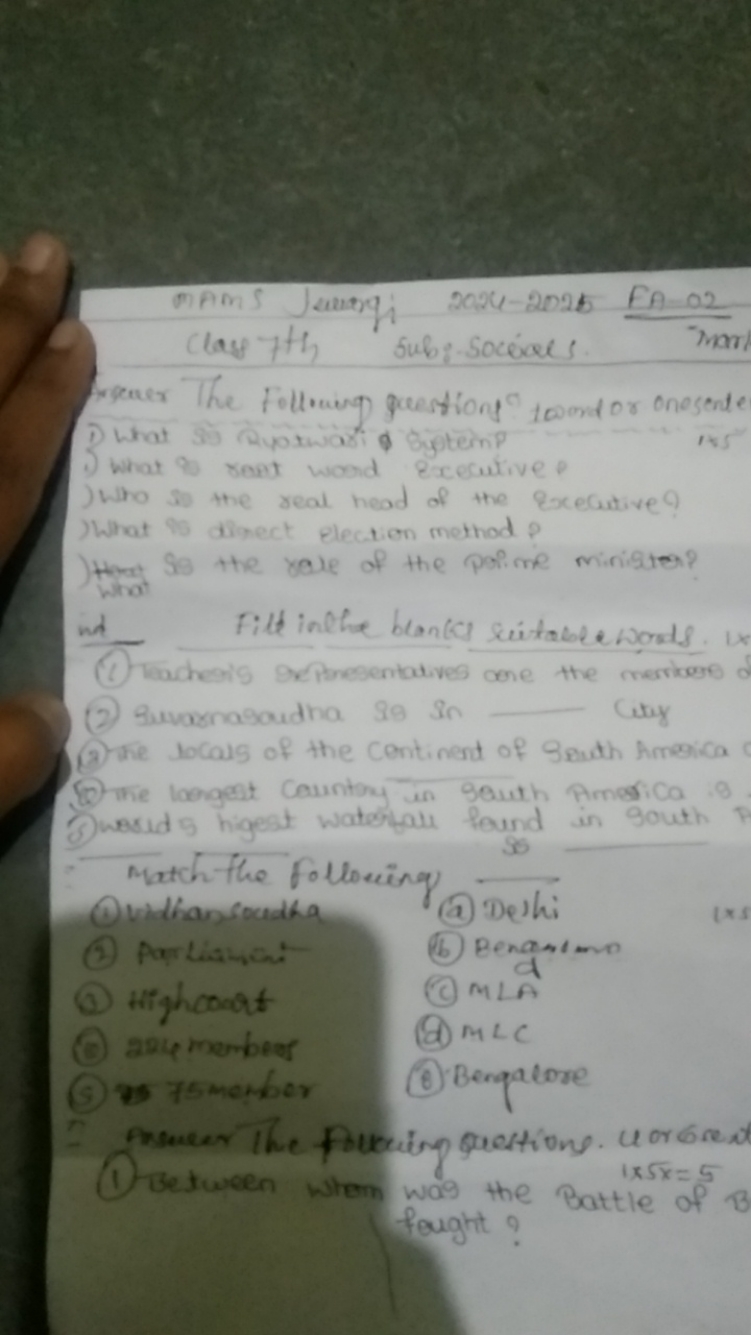 MAMS Jewargi 2024-2025 FA-02
Class 7th Sub:- Socieals. Mark
Answer The Following questions 1 word or one sente
1) What is Ryotwari System?
) What is root word Executive?
) Who is the real head of the Executive?
) What is direct Election method?
) What is the role of the prime minister?
Fill in the blanks suitable words. 1x
① Teacher's representatives are the members o
② Suvarnasoudha is in ______ City
The locals of the Continent of South America
The largest Country in South America is
⑤ world's higest waterfall found in South A
is ______
Match the Following
① Vidhansoudha ⓐ Delhi 1x5
② Parliament ⓑ
③ Highcourt ⓒ MLA
④ 224 members ⓓ MLC
⑤ 75 member ⓔ Bengalore
Answer The Following questions. 4 or 6
1x5x=5
① Between whom was the Battle of B
fought?